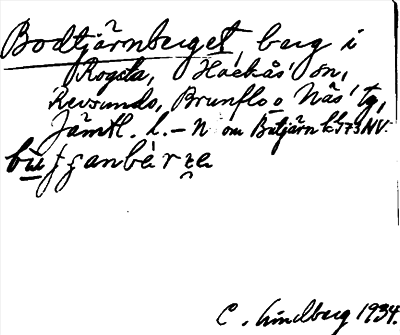 Bodtjärnberget, berg i
Rogsta, Hackås' sn,
Revsunds, Brunflo o Näs' tg,
Jämtl. l. – N om Botjärn bl. 73 NV.
C. Lindberg 1934.